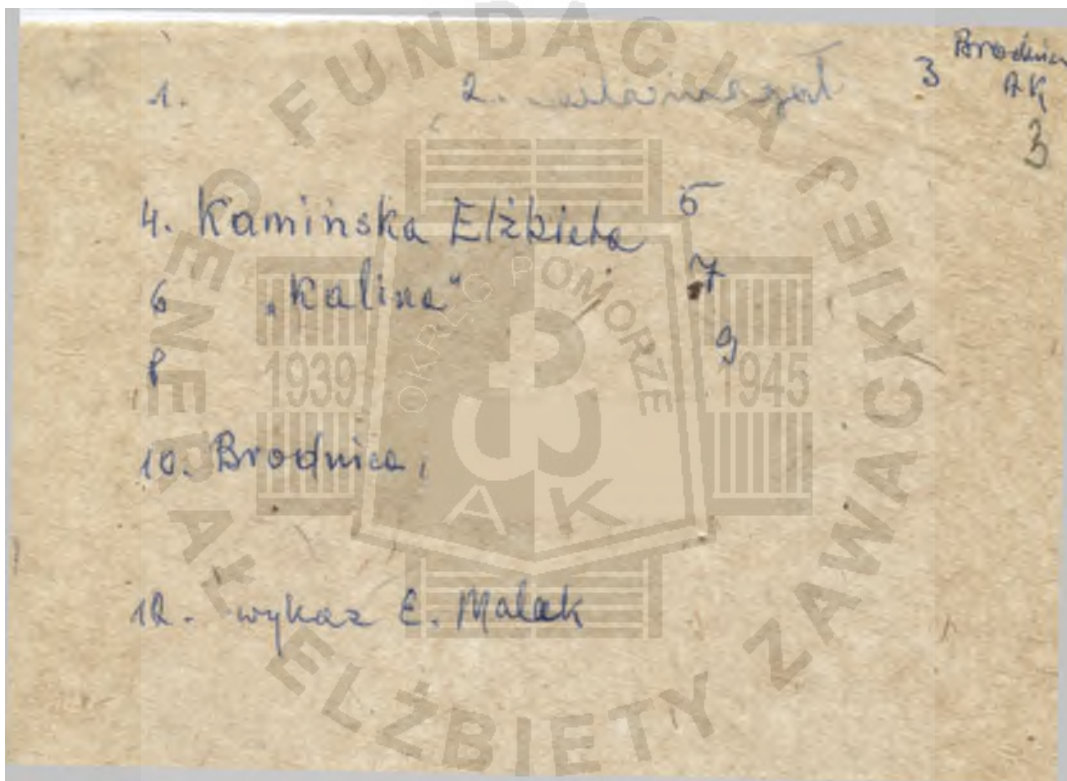 Brodnica
1. 2. 3 AK
3
4. Kamińska Elżbieta 5
6 „Kalina" 7
8 9
10. Brodnica,
12. wykaz E. Malak
FUNDACJA GENERAŁ ELŻBIETY ZAWACKIEJ
OKRĘG POMORZE
1939 1945
AK